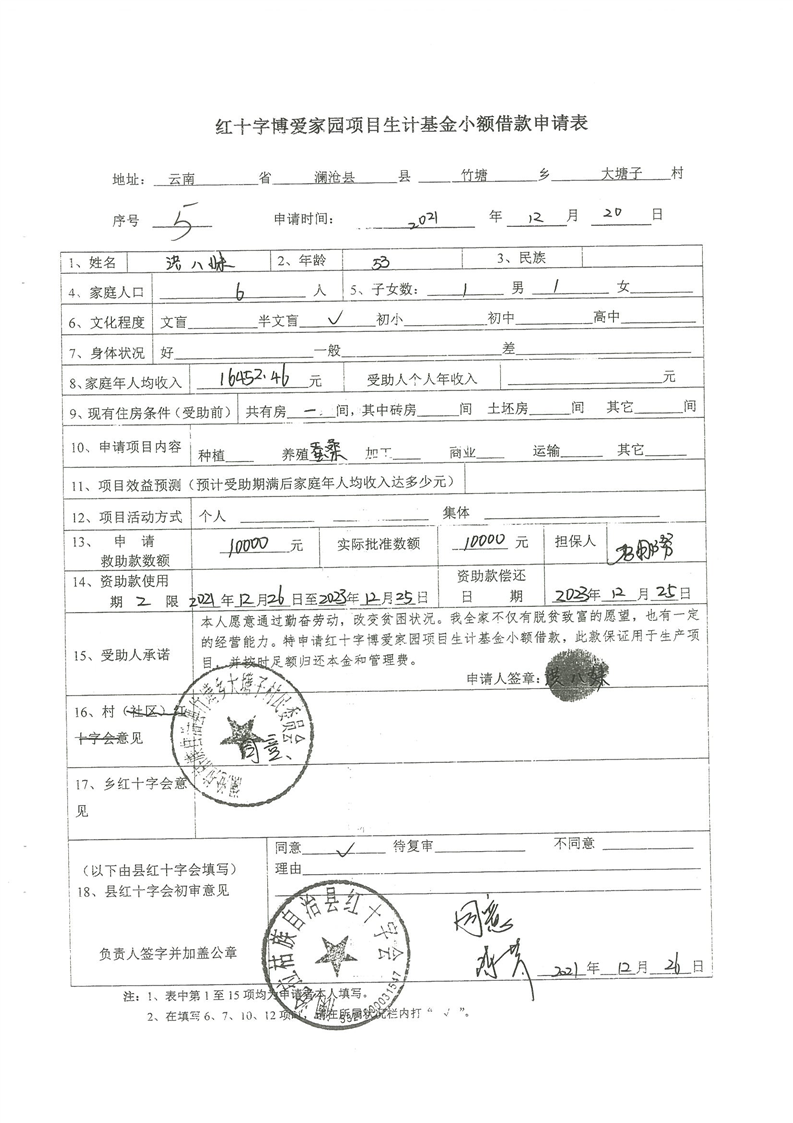 红十字博爱家园项目生计基金小额借款申请表
地址： 云南 省 澜沧县 县 竹塘 乡 大塘子 村
序号 5 申请时间： 2021 年 12 月 20 日
1、姓名 八妹 2、年龄 53 3、民族
4、家庭人口 6 人 5、子女数： 1 男 1 女
6、文化程度 文盲 半文盲 √ 初小 初中 高中
7、身体状况 好 一般 差
8、家庭年人均收入 16452.46 元 受助人个人年收入 元
9、现有住房条件（受助前） 共有房 一 间，其中砖房 间 土坯房 间 其它 间
10、申请项目内容 种植 养殖 蚕桑 加工 商业 运输 其它
11、项目效益预测（预计受助期满后家庭年人均收入达多少元）
12、项目活动方式 个人 集体
13、 申 请 救助款数额 10000 元 实际批准数额 10000 元 担保人
14、资助款使用 期 2 限 2021年12月26日至2023年12月25日 资助款偿还 日 期 2023年 12 月 25日
本人愿意通过勤奋劳动，改变贫困状况。我全家不仅有脱贫致富的愿望，也有一定
15、受助人承诺 的经营能力。特申请红十字博爱家园项目生计基金小额借款，此款保证用于生产项
目，并按时足额归还本金和管理费。
申请人签章：
16、村（社区）红
十字会意见 同意、
竹塘乡大塘子村村民委员会
17、乡红十字会意
见
同意 √ 待复审 不同意
（以下由县红十字会填写） 理由
18、县红十字会初审意见
同意
拉祜族自治县红十字会
负责人签字并加盖公章 2021 年 12 月 26 日
注：1、表中第1至15项均为申请者本人填写。
2、在填写6、7、10、12项时，请在所属状况栏内打“ √ ”。